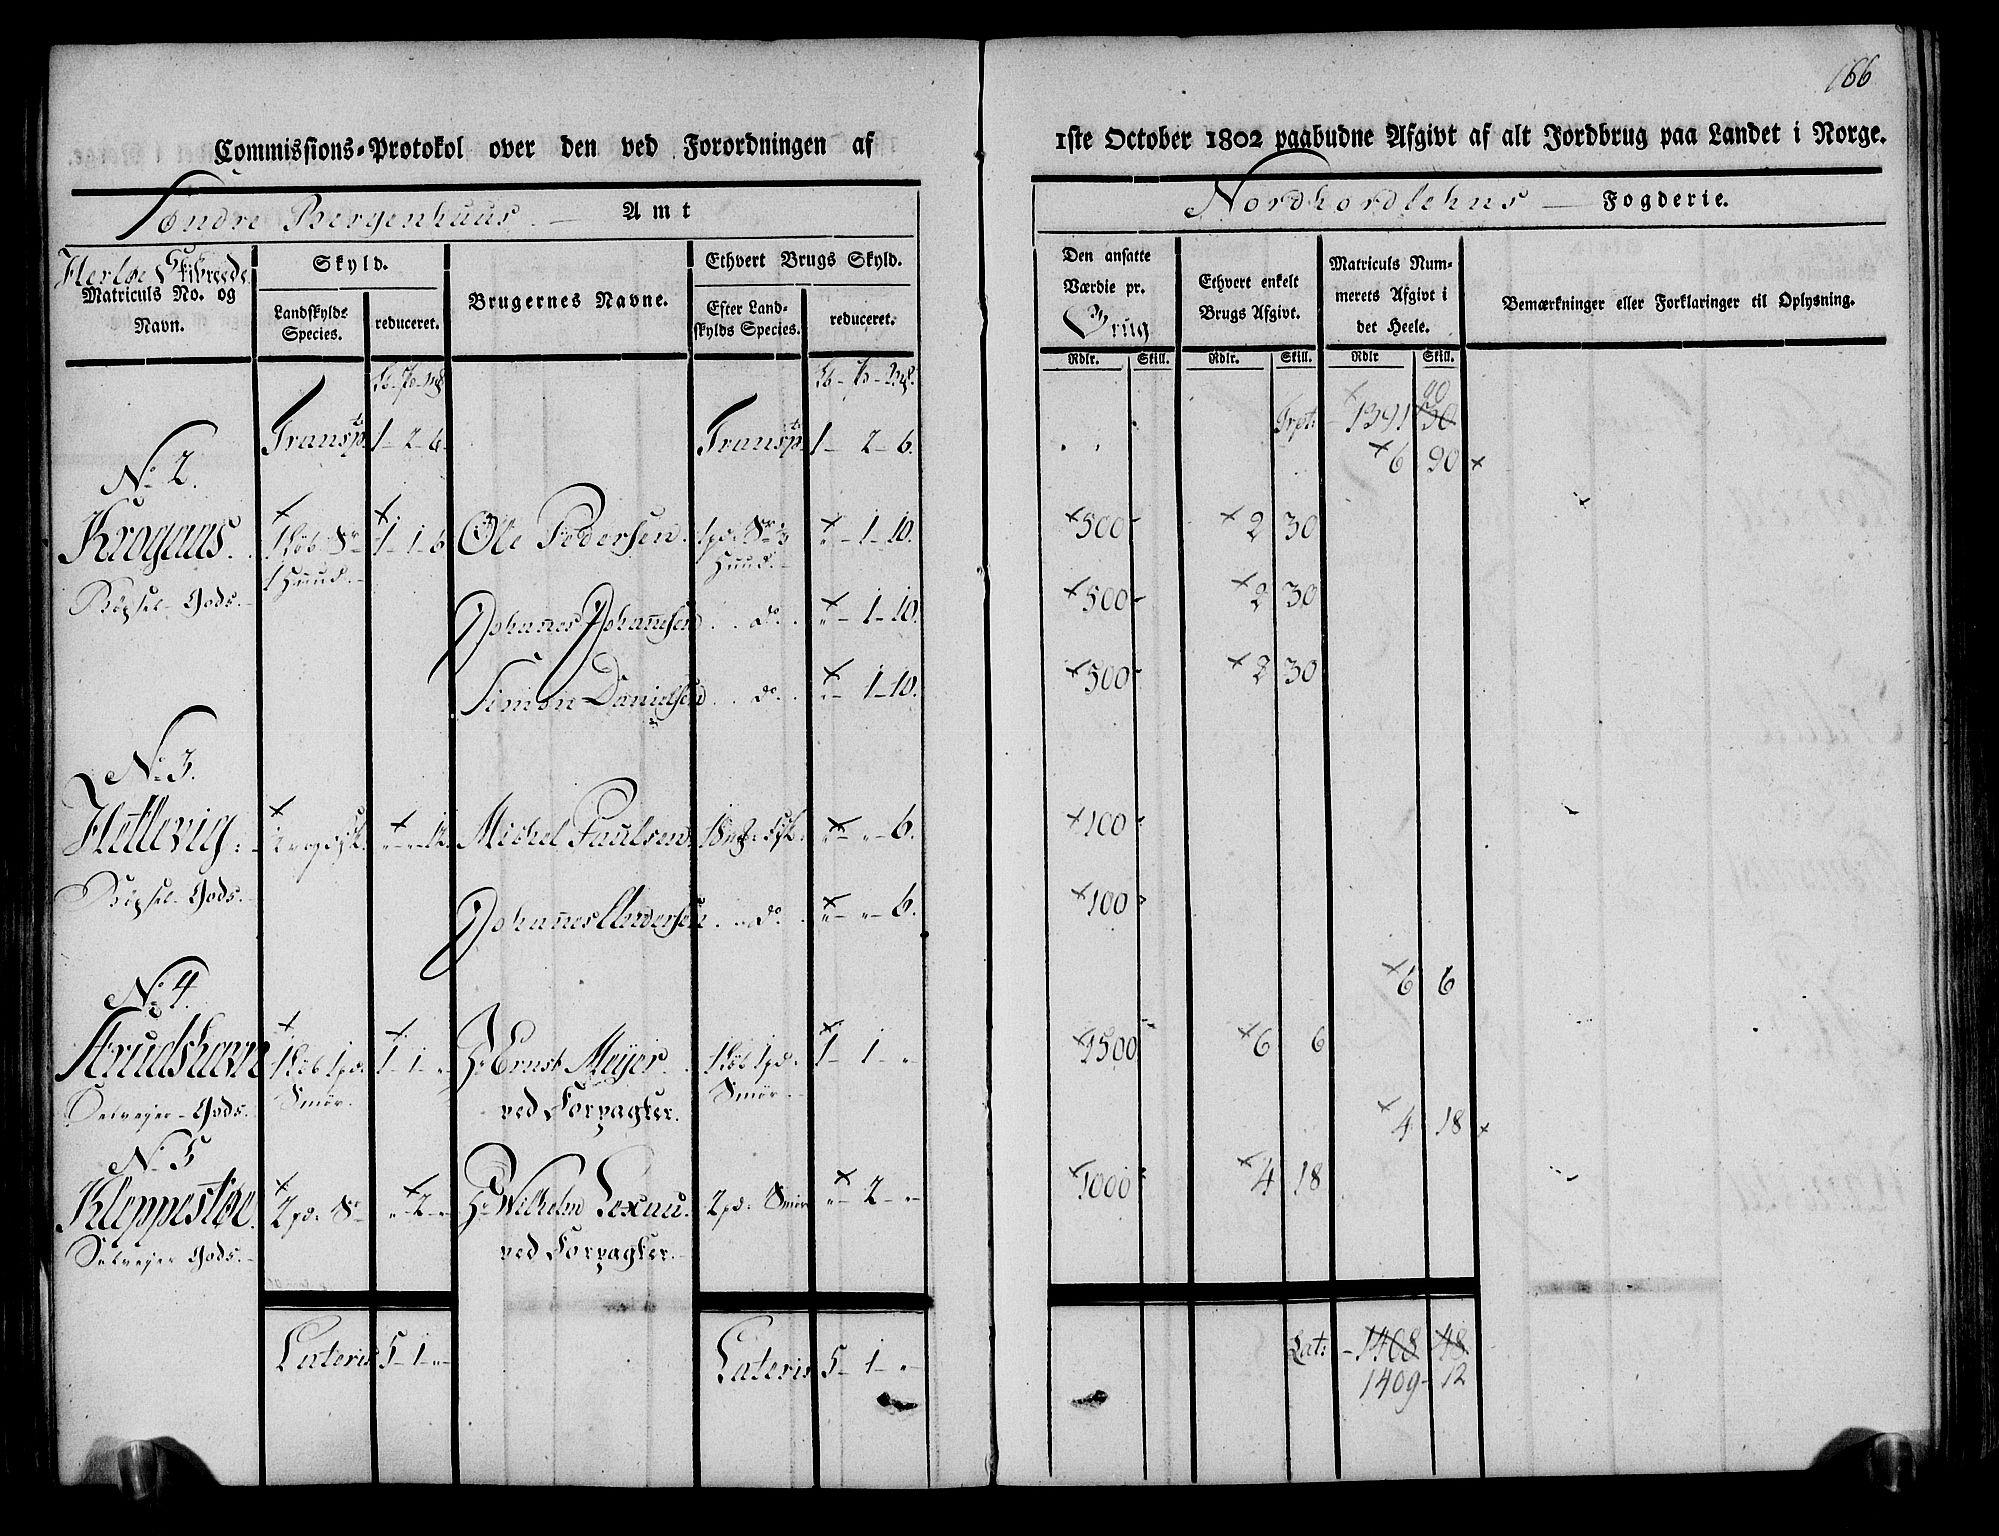 166
Commissions-Protokol over den ved Forordningen af
1ste October 1802 paabudne Afgivt af alt Jordbrug paa Landet i Norge.
Söndre Bergenhuus — Amt
Nordhordlehns — Fogderie.
Herløe Skibreede
Matriculs No. og
Navn.
Skyld.
Landskylds
Species.
reduceret.
Brugernes Navne.
Ethvert Brugs Skyld.
Efter Land-
skylds Species.
reduceret.
Den ansatte
Værdie pr.
Brug
Ethvert enkelt
Brugs Afgivt.
Matriculs Num-
merets Afgivt i
det Heele.
Bemærkninger eller Forklaringer til Oplysning.
Rdlr. Skill. Rdlr. Skill. Rdlr Skill.
Transpt. 1 - 2 - 6. Transpt. 1 - 2 - 6. Trpt: - 1391 90
6 90
No. 2.
Krogaas. 1 - 1 - 6 Ole Pedersen. 1 pd. Sr. 3 „ - 1 - 10. 500 - 2 30
1 Huud. Huud.
Johannes Johannesen . . do. . „ - 1 - 10. 500 - 2 30
Simon Danielsen . . do. . „ - 1 - 10. 500 - 2 30
No. 3.
Hetlevig. „ - „ - 12. Michel Paulsen. „ - „ - 6. 100 -
Johannes Andersen . . do. . „ - „ - 6. 100 -
6 6
No. 4.
Strudshavn 1 Løb 1 pd. 1 - 1 - „ Hr Ernst Meyer. 1 Løb 1 pd. 1 - 1 - „ 1500 6 6
Selveyer-Gods. Smør. ved Forpagter. Smør.
4 18
No. 5
Kleppestøe. 2 pd. Sr „ - 2 - „ Hr Wilhelm Lexau. 2 pd. Smør „ - 2 - „ 1000 4 18
Selveyer Gods. ved Forpagter.
Lateris 5 - 1 - „ Lateris 5 - 1 - „ Lat: - 1408 48
1409 - 12